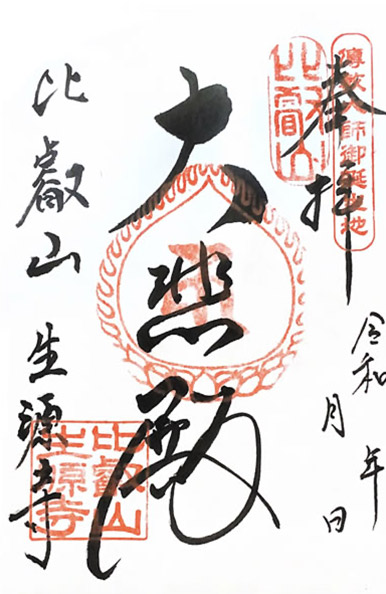 傳教大師御誕生地
奉拝
比叡山
令和　年
月　日
大悲殿
比叡山 生源寺
比叡山
生源寺